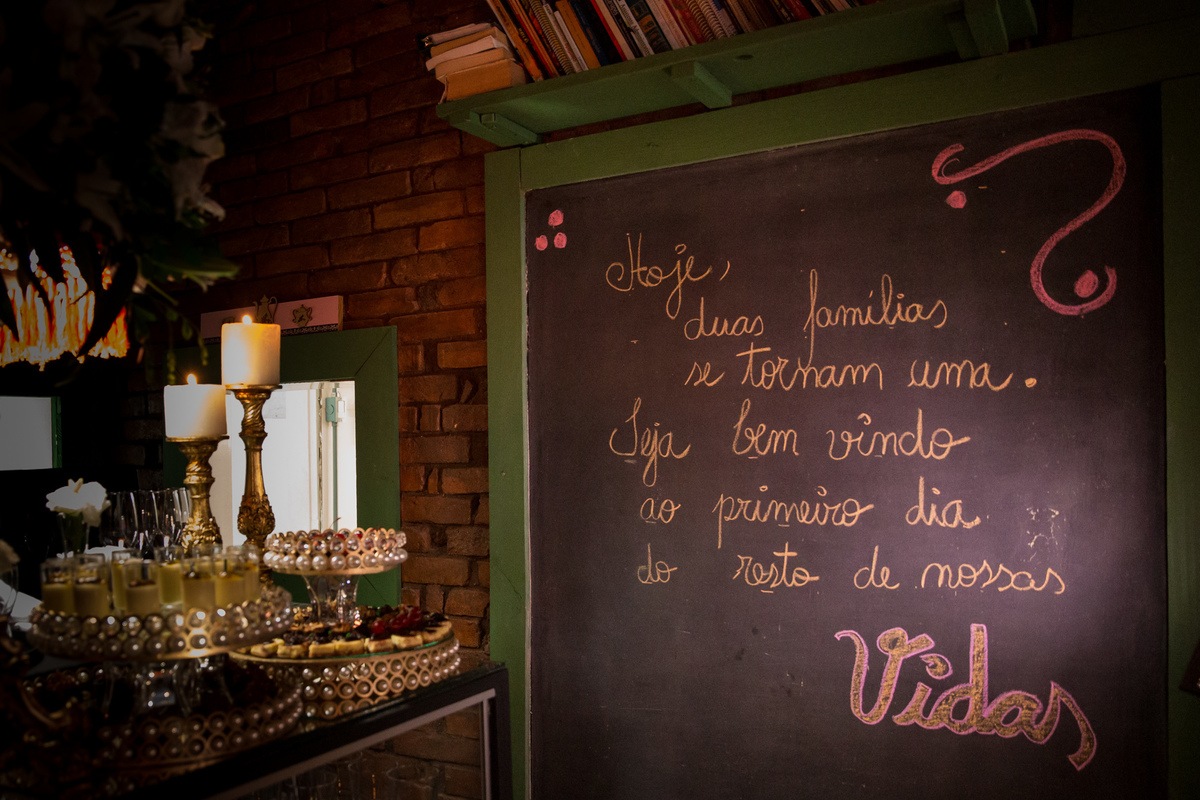 Hoje,
duas famílias
se tornam uma.
Seja bem vindo
ao primeiro dia
do resto de nossas
Vidas